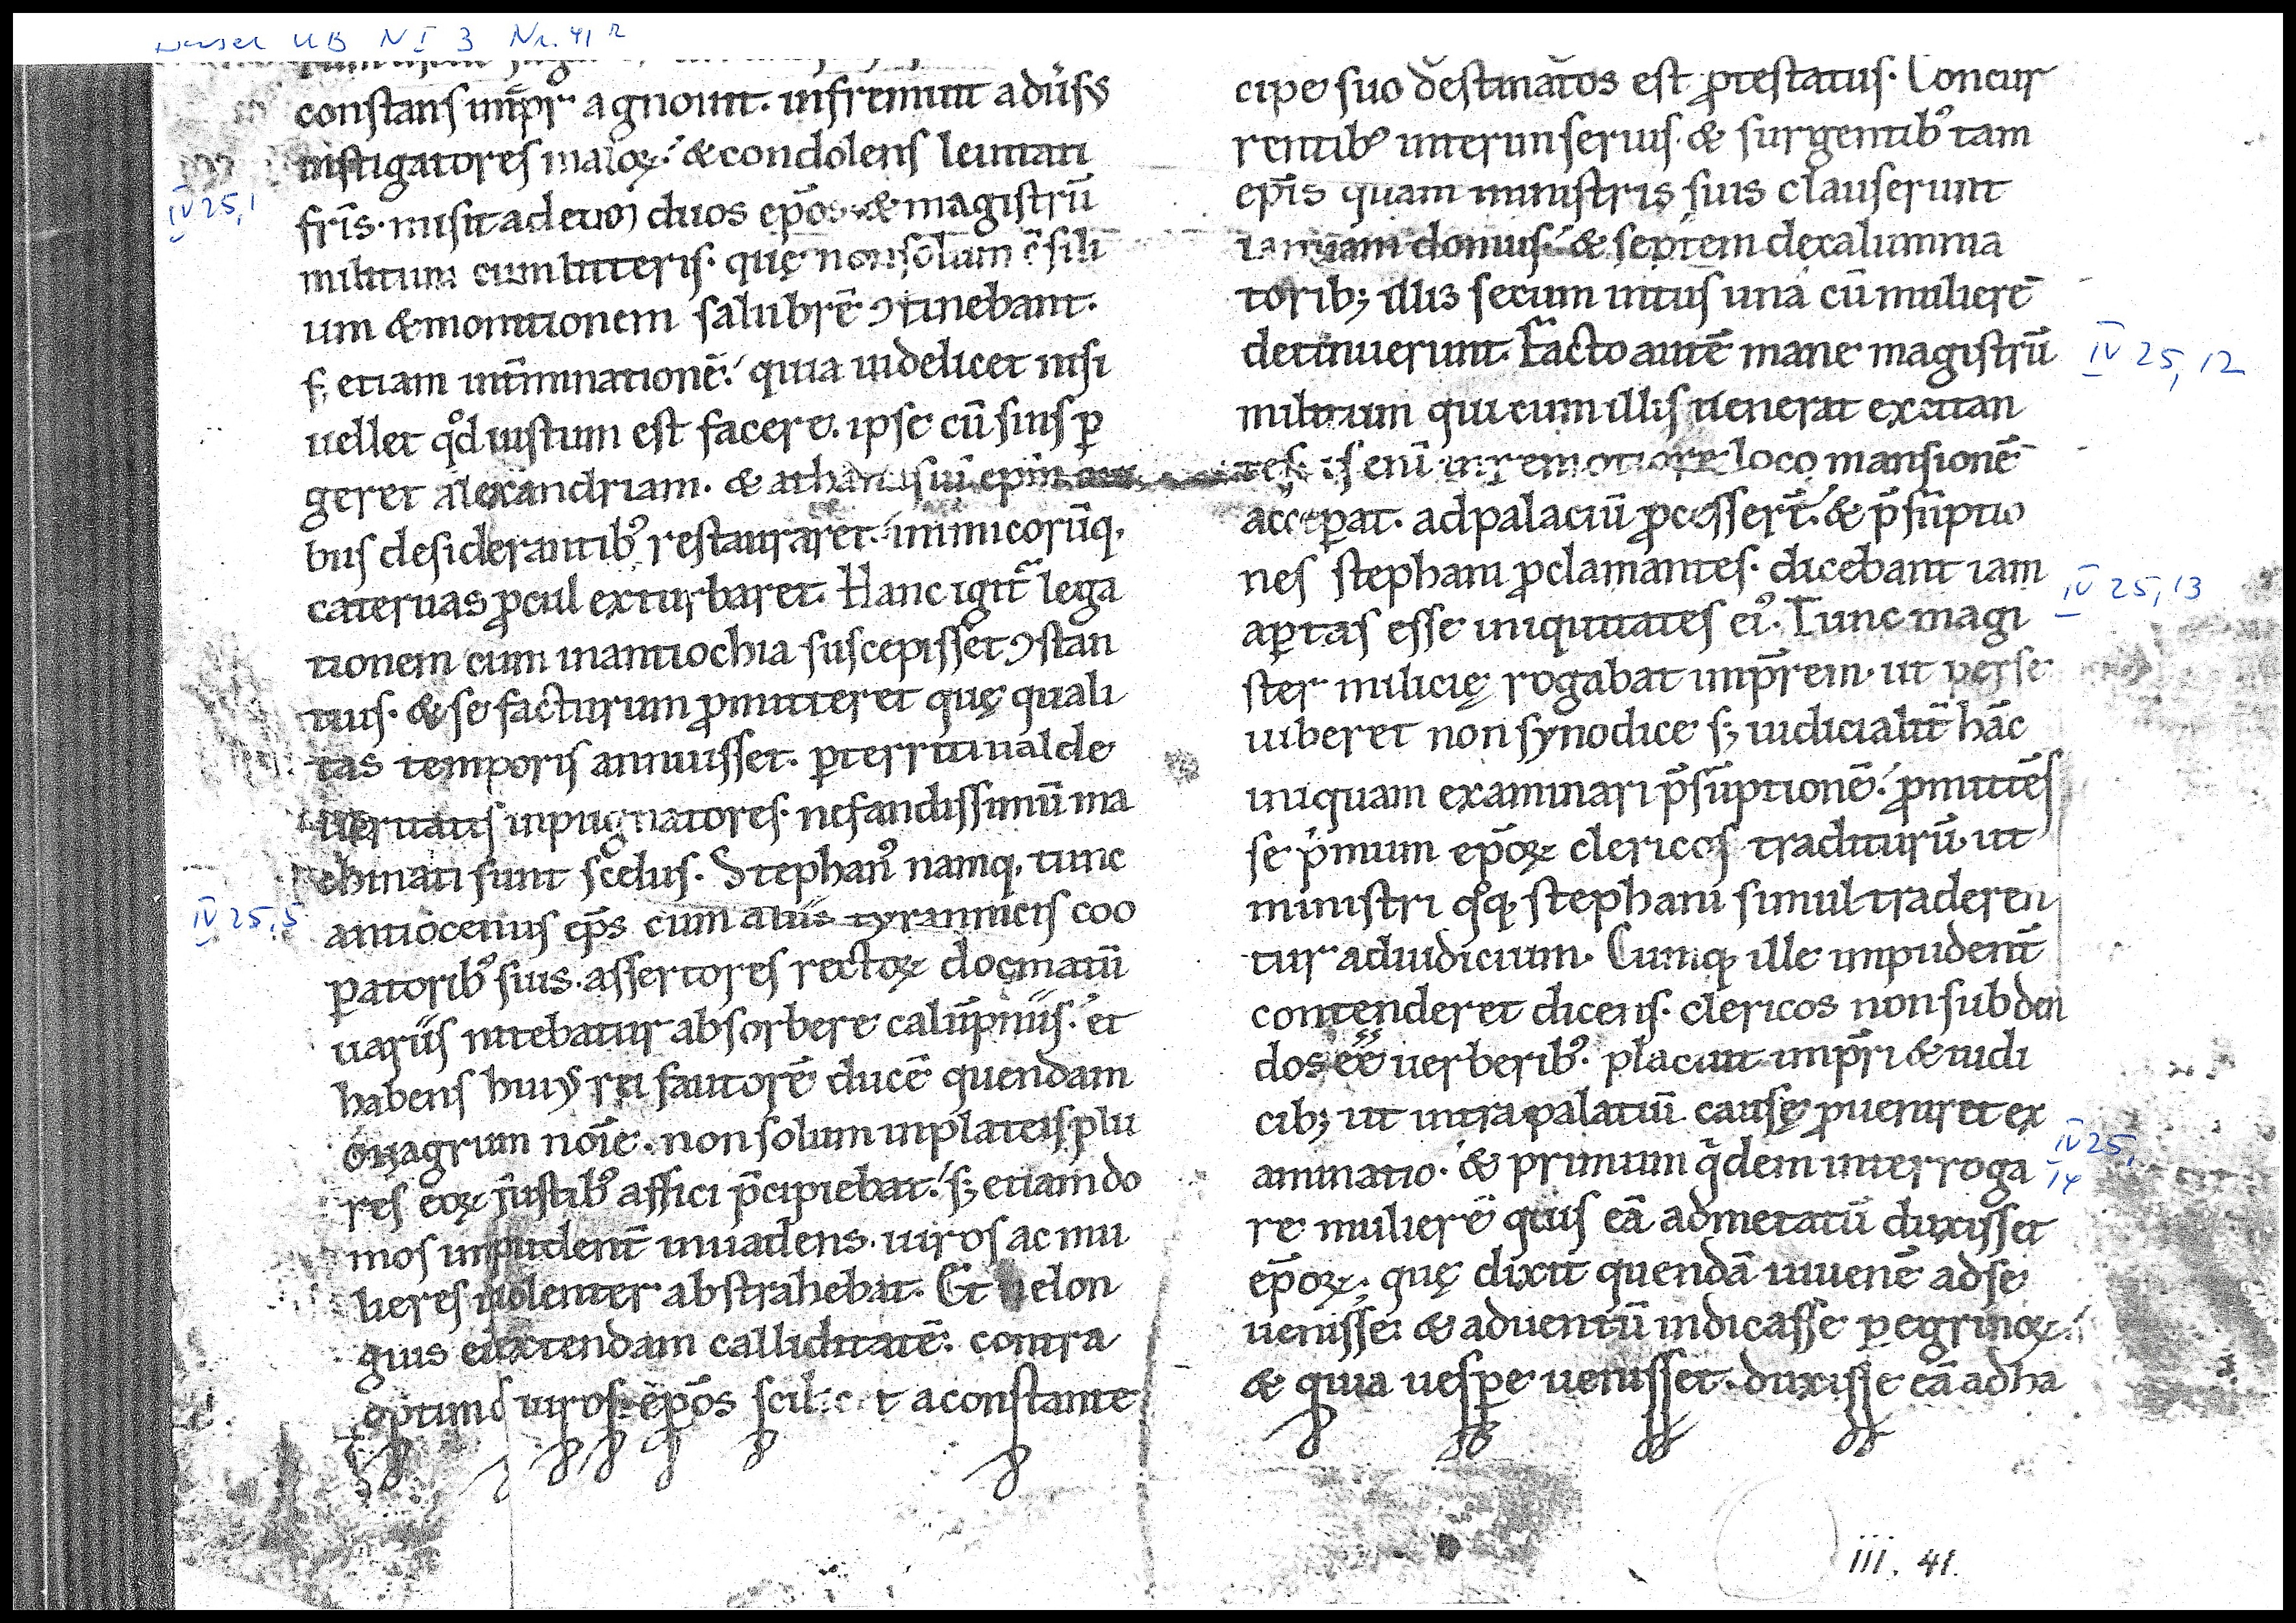 UB N I 3 Nr. 41 r
constans imp̄r agnouit. infremuit adūsꝰ
instigatores maloꝝ. & condolens leuitati
fr̄is. misit ad eum duos ep̄os & magistrū
militum cum litteris. quę non solum c̄sili
um & monitionem salubrē ꝯtinebant.
s; etiam int̄minationē. quia uidelicet nisi
uellet qd̓ iustum est facere. ipse cū suis ꝑ
geret alexandriam. & athanasiū ep̄m
bus desiderantibꝰ restauraret. inimicorūq,
cateruas ꝓcul exturbaret. Hanc igit̄ lega
tionem cum in antiochia suscepisset ꝯstan
tius. & se facturum ꝓmitteret quę quali
tas temporis annuisset. ꝑterriti ualde
ueritatis inpugnatores. nefandissimū ma
chinati sunt scelus. Stephanꝰ namq, tunc
antiocenus ep̄s cum aliis tyrannicis coo
ꝑatoribꝰ suis. assertores rectoꝝ docmatū
uariis nitebatur absorbere calūpniis. et
habens huiꝰ rei fautorē ducē quendam
onagrum noīe. non solum in plateis plu
res eoꝝ fustibꝰ affici p̄cipiebat. s; etiam do
mos impudent̄ inuadens. uiros ac mu
lieres uiolenter abstrahebat. Et ne lon
gius ei extendam calliditatē. contra
optimos uiros ep̄os scilicet a constante
IV 25,1
IV 25,5
cipe suo destinatos est ꝓtestatus. Concur
rentibꝰ interim seruis. & surgentibꝰ tam
ep̄is quam ministris suis clauserunt
ianuam domus. & septem de calumma
torib; illis secum intus una cū muliere
detinuerunt. Facto autē mane magistrū
militum qui cum illis uenerat excitan
tes. is enī in remotiore loco mansionē
acceꝑat. ad palaciū ꝓcesser̄t. & p̄sūptio
nes stephani ꝓclamantes. dicebant iam
aꝑtas esse iniquitates eiꝰ. Tunc magi
ster milicię rogabat imp̄rem. ut per se
iuberet non synodice s; iudicialit̄ hāc
iniquam examinari p̄sūptionē. ꝓmittēs
se p̓mum ep̄oꝝ clericos traditurū. ut
ministri qq, stephani simul traderen
tur ad iudicium. Cumq, ille impudent̄
contenderet dicens. clericos non subden
dos eē uerberibꝰ. placuit imp̄ri & iudi
cib; ut intra palatiū causę ꝓueniret ex
aminatio. & primum q̓dem interroga
re mulierē quis eā ad metatū duxisset
ep̄oꝝ. quę dixit quendā iuuenē ad se
uenisse & aduentū indicasse ꝑegrinoꝝ.
& quia uespe uenisset. duxisse eā ad ha
IV 25, 12
IV 25, 13
IV 25, 14
iii. 41.